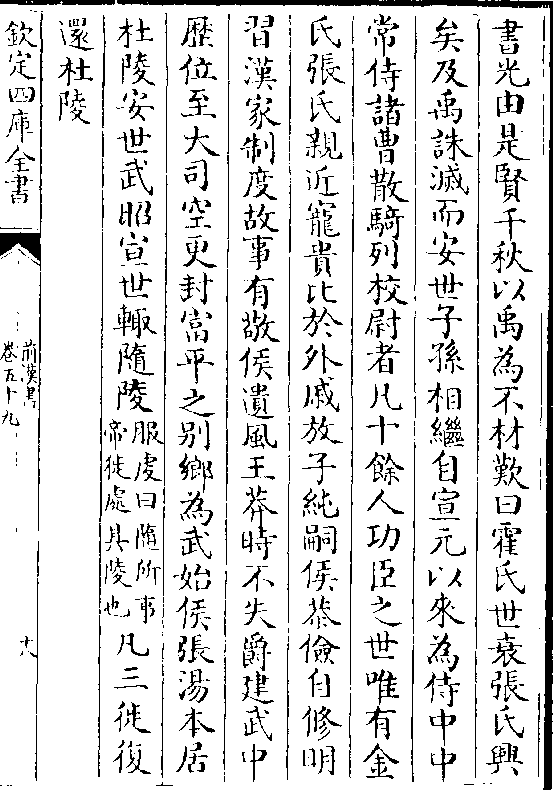 書光由是賢千秋以禹為不材歎曰霍氏世衰張氏興
矣及禹誅滅而安世子孫相繼自宣元以來為侍中中
常侍諸曹散騎列校尉者凡十餘人功臣之世唯有金
氏張氏親近寵貴比於外戚放子純嗣侯恭儉自修明
習漢家制度故事有敬侯遺風王莽時不失爵建武中
歷位至大司空更封富平之别鄉為武始侯張湯本居
杜陵安世武昭宣世輙隨陵服虔曰隨所事帝徙處其陵也凡三徙復
還杜陵
欽定四庫全書
前漢書
卷五十九
十八